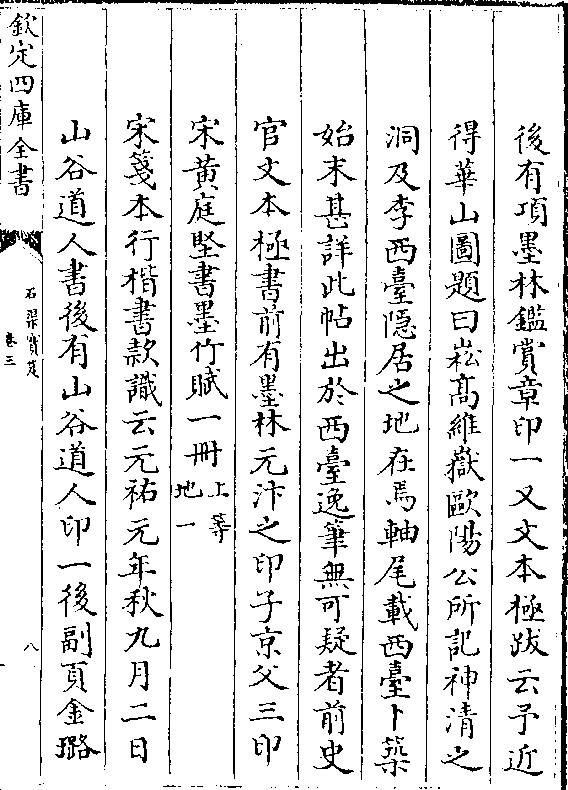 後有項墨林鑑賞章印一又文本極跋云予近
得華山圖題曰崧髙維嶽歐陽公所記神清之
洞及李西臺隱居之地在焉軸尾載西臺卜築
始末甚詳此帖出於西臺逸筆無可疑者前史
官文本極書前有墨林元汴之印子京父三印
宋黄庭堅書墨竹賦一冊上等地一
宋箋本行楷書款識云元祐元年秋九月二日
山谷道人書後有山谷道人印一後副頁金璐
欽定四庫全書
石渠寳笈
卷三
八